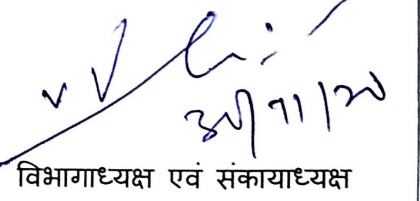 30/11/20
विभागाध्यक्ष एवं संकायाध्यक्ष